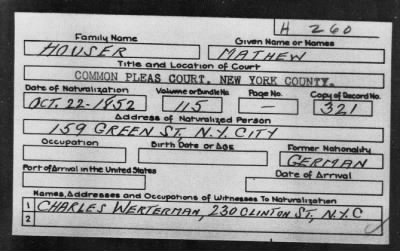 H 260
Family Name Given Name or Names
HOUSER MATHEW
Title and Location of Court
COMMON PLEAS COURT, NEW YORK COUNTY.
Date of Naturalization Volume or Bundle No. Page No. Copy of Record No.
OCT. 22-1852 115 — 321
Address of Naturalized Person
159 GREEN ST, N.Y. CITY
Occupation Birth Date or Age Former Nationality
GERMAN
Port of Arrival in the United States Date of Arrival
Names, Addresses and Occupations of Witnesses To Naturalization
1 CHARLES WERTERMAN, 230 CLINTON ST, N.Y.C
2